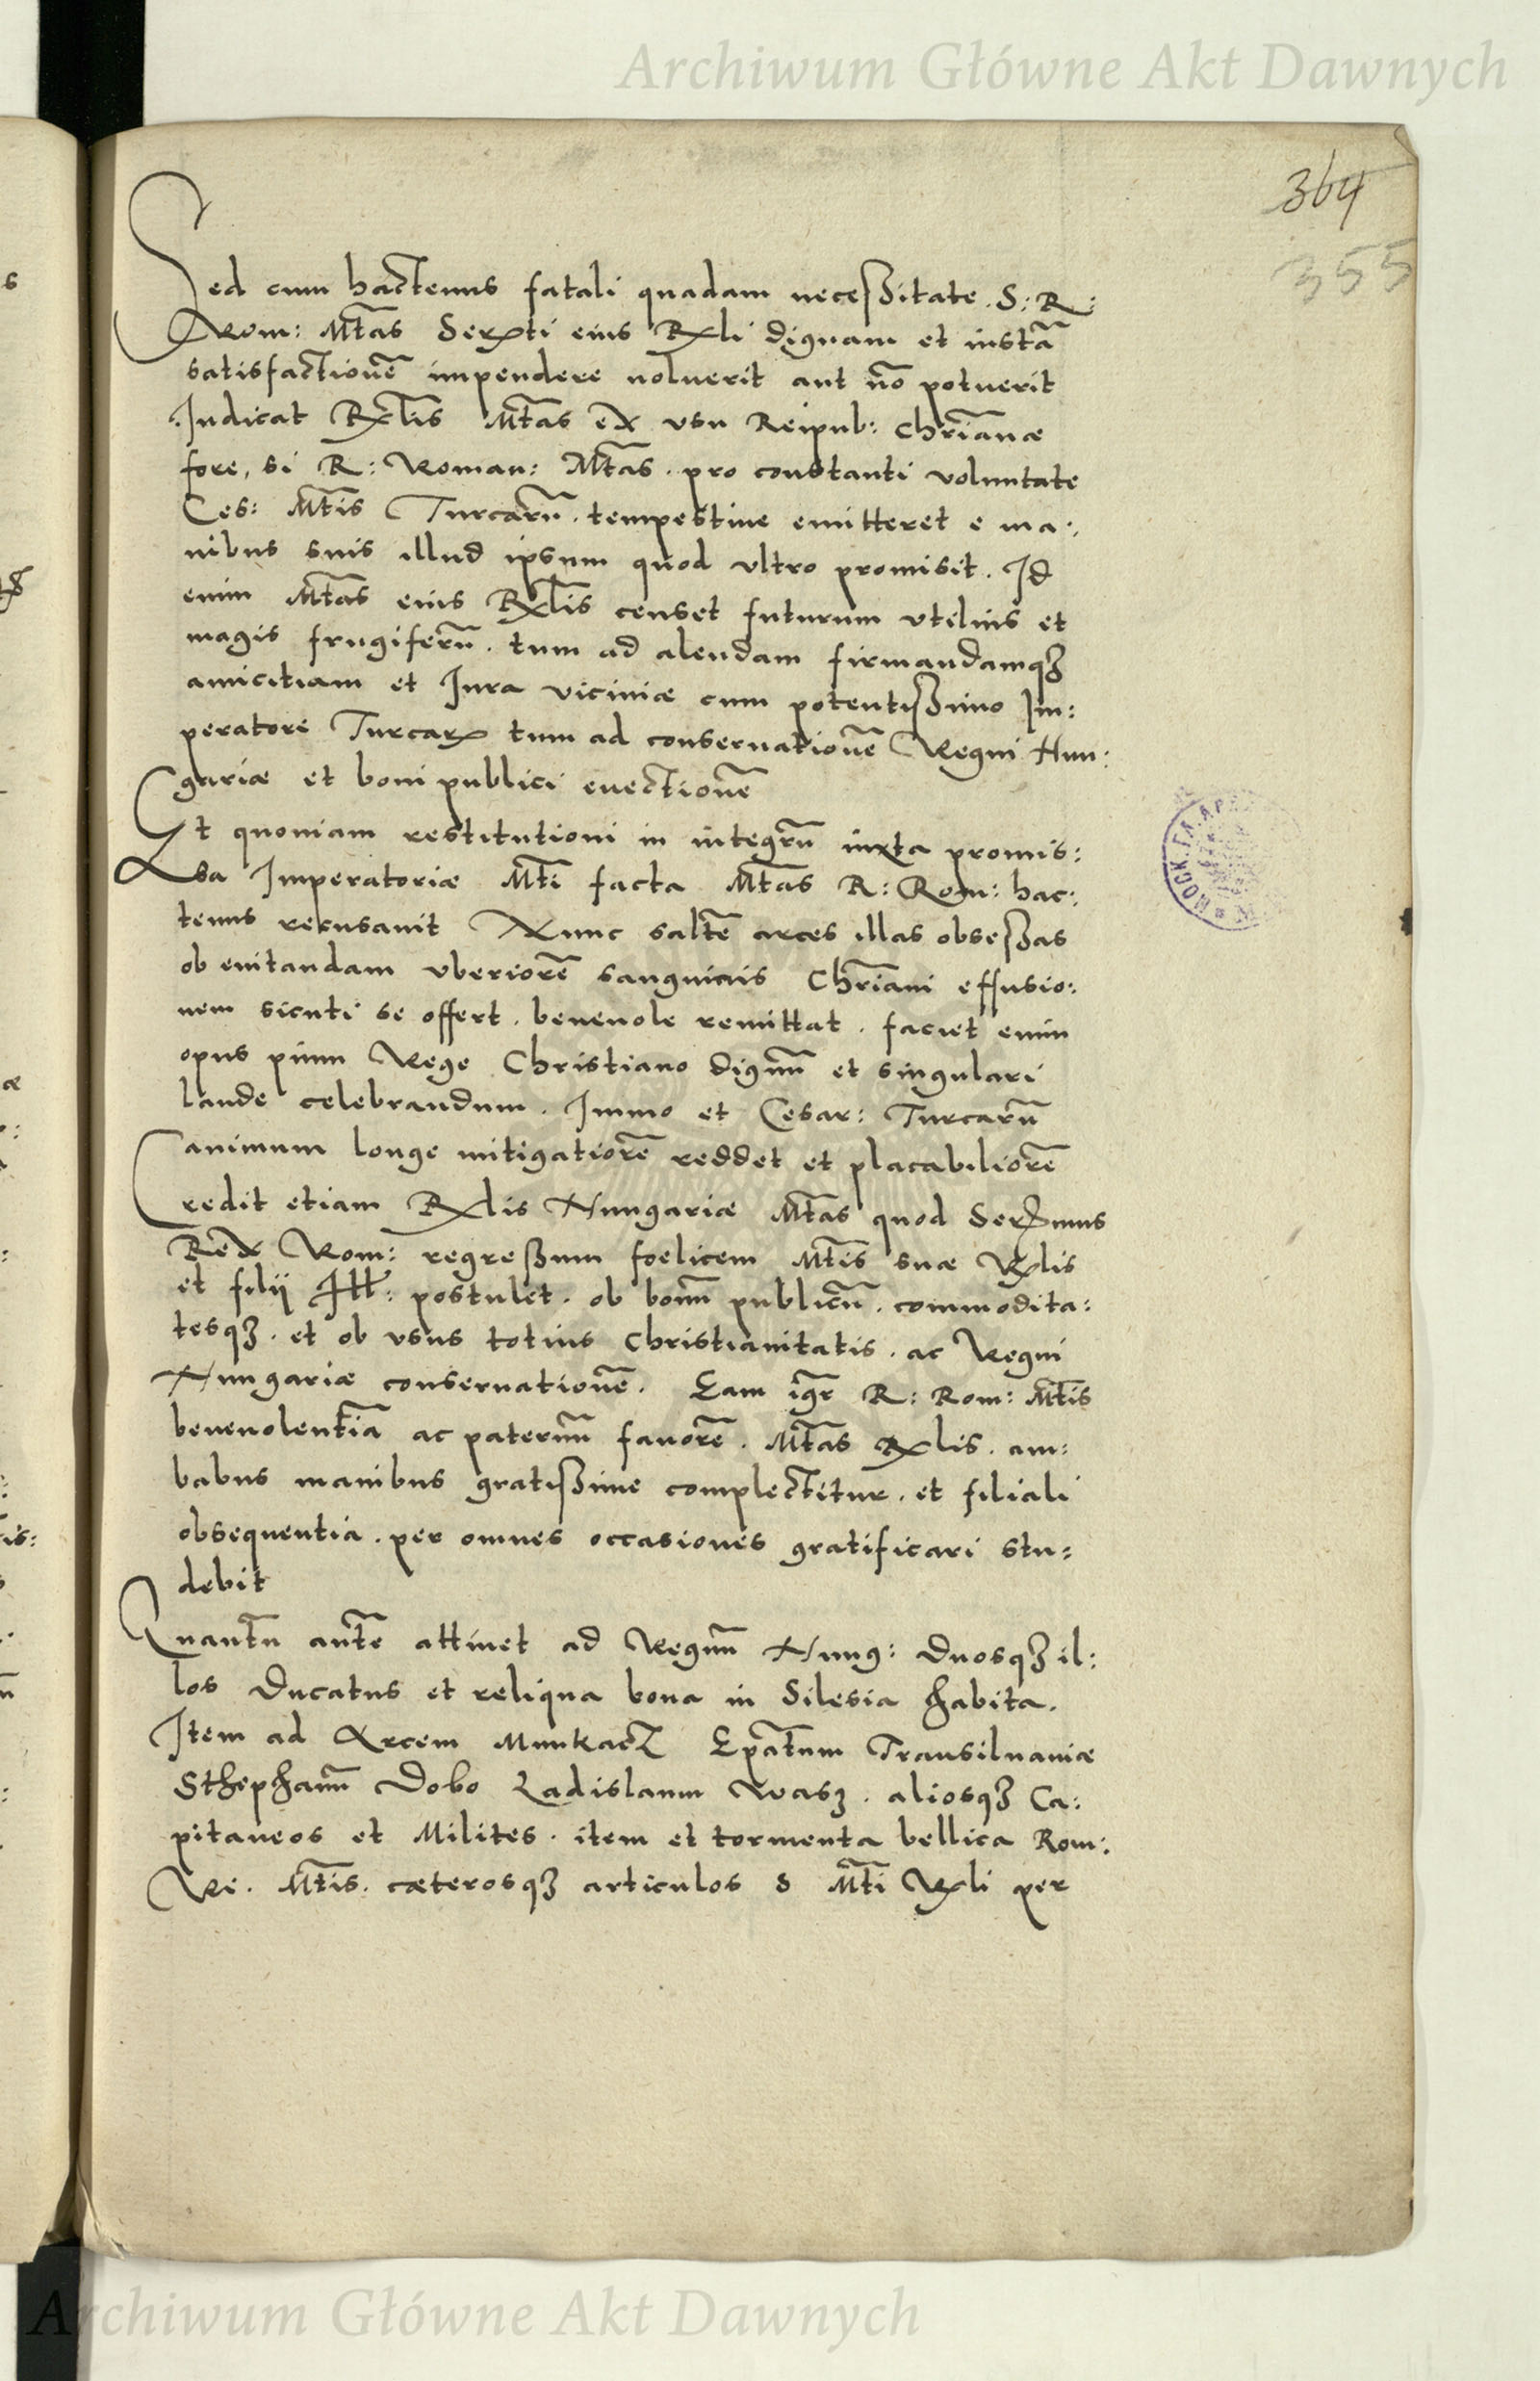 Archiwum Główne Akt Dawnych
364
355
Sed cum hactenus fatali quadam necessitate. S: R:
Rom: Mtas Serti eius Rli dignam et iustā
satisfactionē impendere noluerit aut nō potuerit
Iudicat Rlis Mtas ex vsu Reipub: Chrianæ
fore, si R: Roman: Mtas. pro constanti voluntate
Ces: Mtis Turcarū. tempestiue emitteret e ma:
nibus suis illud ipsum quod vltro promisit. Id
enim Mtas eius Rlis censet futurum vtilius et
magis frugiferū. tum ad alendam firmandamqꝫ
amicitiam et Iura viciniæ cum potentissimo Im:
peratore Turcarꝝ tum ad conseruationē Regni Hun:
gariæ et boni publici euectionē
Et quoniam restitutioni in integrū iuxta promis:
sa Imperatoriæ Mti facta Mtas R: Rom: hac:
tenus recusauit Nunc saltē arces illas obsessas
ob euitandam vberiorē sanguinis Chriani effusio:
nem sicuti se offert. beneuole remittat. faciet enim
opus pium Rege Christiano dignū et singulari
laude celebrandum. Immo et Cesar: Turcarū
animum longe mitigatiorē reddet et placabiliorē
Credit etiam Rlis Hungariæ Mtas quod Sermus
Rex Rom: regressum foelicem Mtis suæ Rlis
et filij Ill: postulet. ob bonū publicū. commodita:
tesqꝫ. et ob vsus totius Christianitatis. ac Regni
Hungariæ conseruationē. Eam igr R: Rom: Mtis
beneuolentiā ac paternū fauorē. Mtas Rlis. am:
babus manibus gratissime complectitur. et filiali
obsequentia. per omnes occasiones gratificari stu=
debit
Quantū autē attinet ad Regnū Hung: Duosqꝫ il:
los Ducatus et reliqua bona in Silesia habita.
Item ad Arcem Munkacz Epatum Transiluaniæ
Sthephanū Dobo Ladislaum Wasz. aliosqꝫ Ca:
pitaneos et Milites. item et tormenta bellica Rom:
Re. Mtis. cæterosqꝫ articulos S Mti Rli per
Archiwum Główne Akt Dawnych